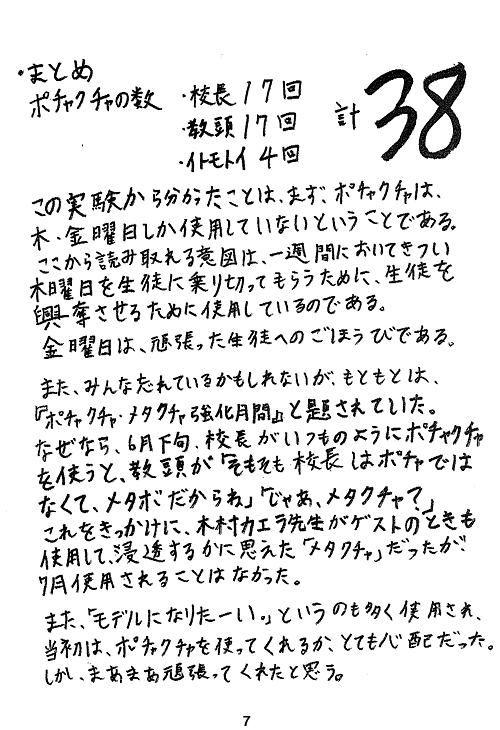 ・まとめ
ポチャクチャの数 ・校長17回
・教頭17回
・イトモトイ 4回
計38
この実験から分かったことは、まず、ポチャクチャは、
木・金曜日しか使用していないということである。
ここから読み取れる意図は、一週間においてきつい
木曜日を生徒に乗り切ってもらうために、生徒を
興奮させるために使用しているのである。
金曜日は、頑張った生徒へのごほうびである。
また、みんな忘れているかもしれないが、もともとは、
『ポチャクチャ・メタクチャ強化月間』と題されていた。
なぜなら、6月下旬、校長がいつものようにポチャクチャ
を使うと、教頭が「そもそも校長はポチャでは
なくて、メタボだからね」「じゃあ、メタクチャ?」
これをきっかけに、木村カエラ先生がゲストのときも
使用して、浸透するかに思えた「メタクチャ」だったが、
7月使用されることはなかった。
また、「モデルになりたーい。」というのも多く使用され、
当初は、ポチャクチャを使ってくれるか、とても心配だった。
しかし、まあまあ頑張ってくれたと思う。
7